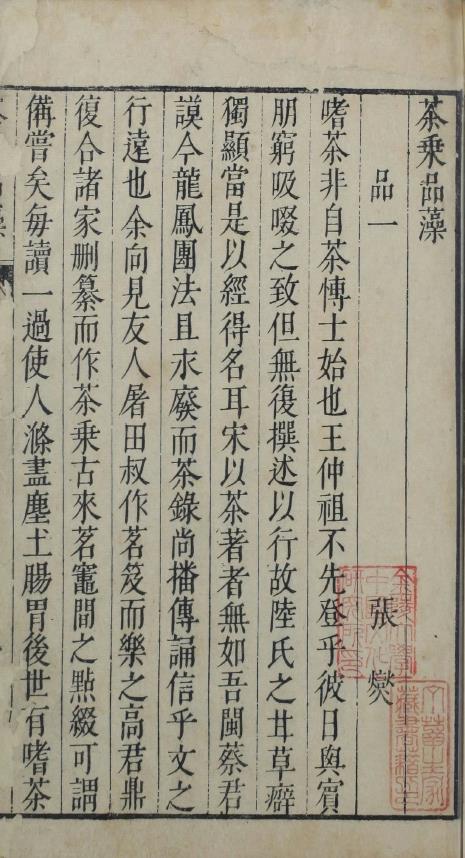 茶乗品藻
品一
張燮
嗜茶非自茶愽士始也王仲祖不先登乎彼日與賓
朋窮吸啜之致但無復撰述以行故陸氏之甘草癖
獨顯當是以經得名耳宋以茶著者無如吾閩蔡君
謨今龍鳳團法且永廢而茶錄尚播傳誦信乎文之
行遠也余向見友人屠田叔作茗笈而樂之高君鼎
復合諸家刪纂而作茶乗古來茗竈間之點綴可謂
備嘗矣每讀一過使人滌盡塵土腸胃後世有嗜茶